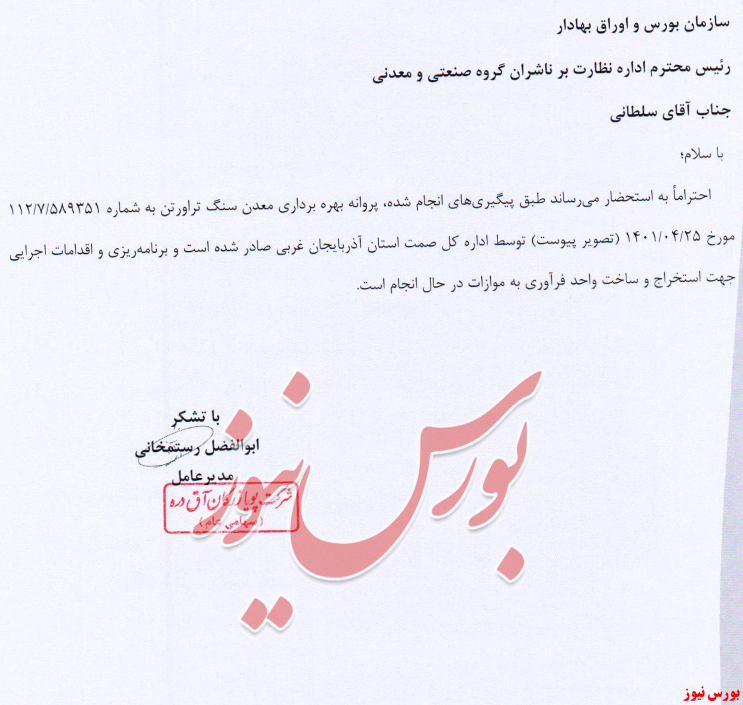 سازمان بورس و اوراق بهادار
رئیس محترم اداره نظارت بر ناشران گروه صنعتی و معدنی
جناب آقای سلطانی
با سلام؛
احتراماً به استحضار می‌رساند طبق پیگیری‌های انجام شده، پروانه بهره برداری معدن سنگ تراورتن به شماره ۱۱۲/۷/۵۸۹۳۵۱
مورخ ۱۴۰۱/۰۴/۲۵ (تصویر پیوست) توسط اداره کل صمت استان آذربایجان غربی صادر شده است و برنامه‌ریزی و اقدامات اجرایی
جهت استخراج و ساخت واحد فرآوری به موازات در حال انجام است.
با تشکر
ابوالفضل رستمخانی
مدیرعامل
شرکت پویا زرکان آق دره
(سهامی عام)
بورس نیوز
بورس نیوز